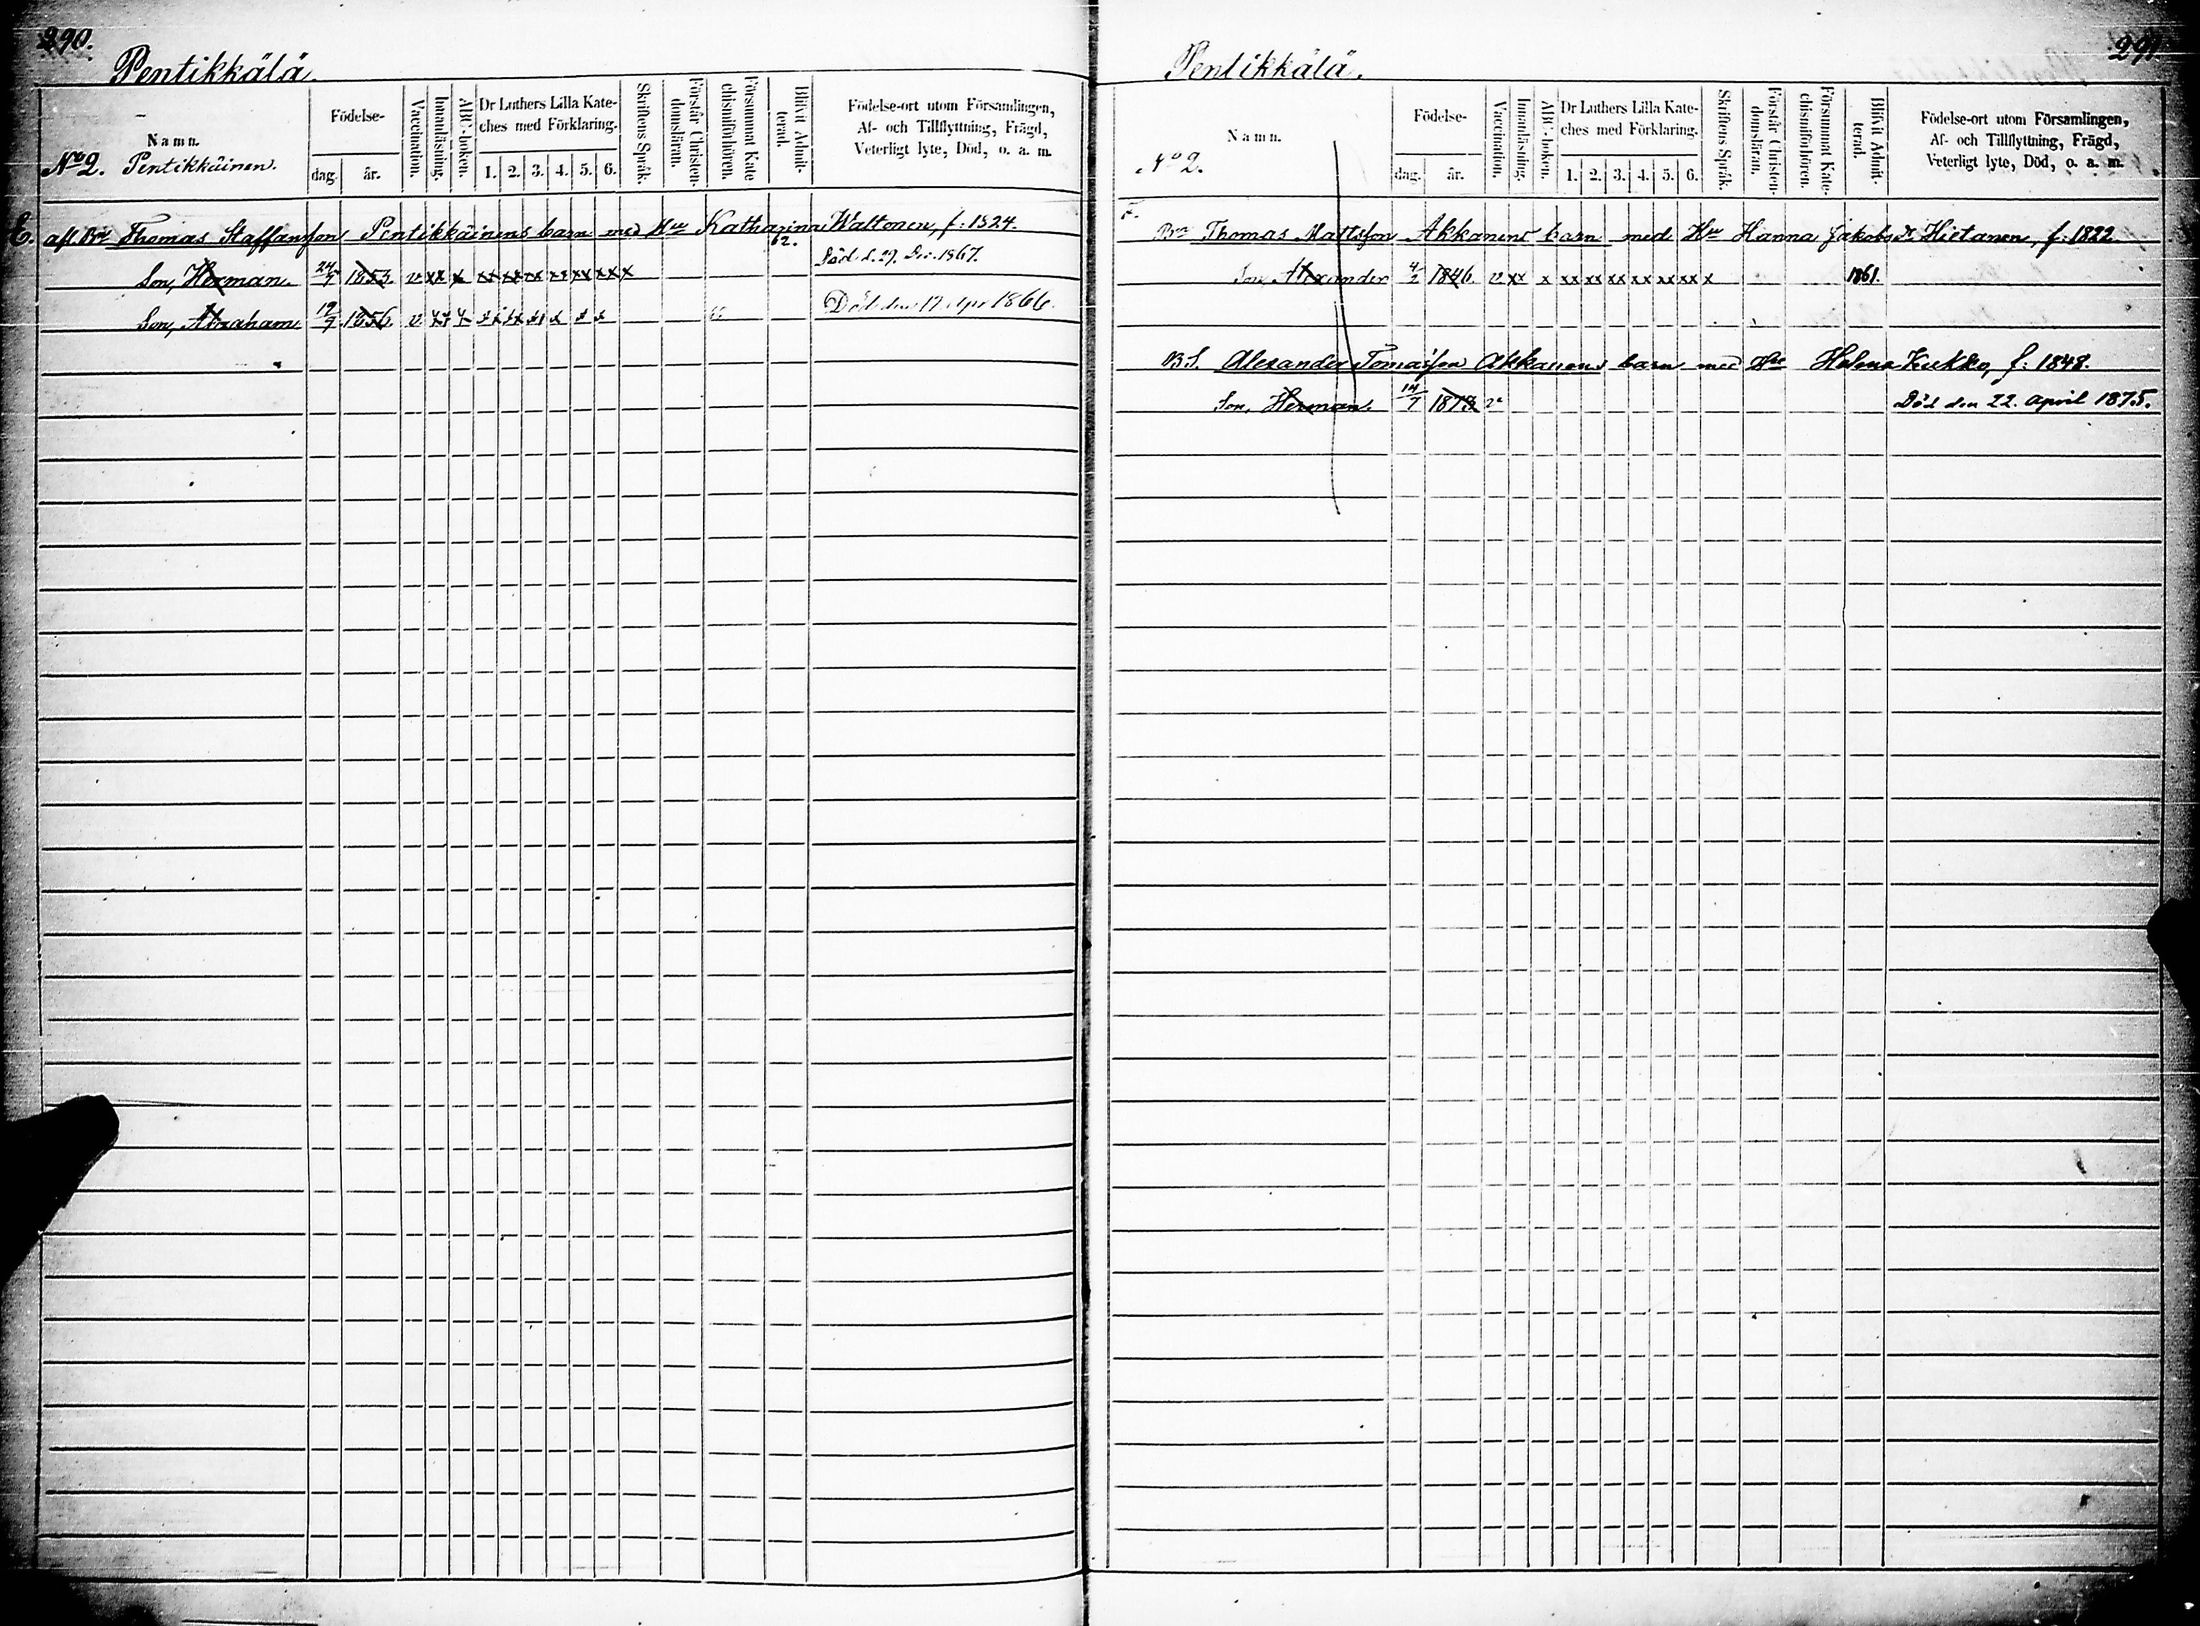 290.
Pentikkälä.
Namn.
Födelse-
dag.
år.
Vaccination.
Innanläsning.
ABC-boken.
Dr Luthers Lilla Kate-
ches med Förklaring.
1. 2. 3. 4. 5. 6.
Skriftens Språk.
Förstår Christen-
domsläran.
Försummat Kate
chismiförhören.
Blifvit Admit-
terad.
Födelse-ort utom Församlingen,
Af- och Tillflyttning, Frägd,
Veterligt lyte, Död, o. a. m.
No 2. Pentikkäinen.
E. afl. Bn Thomas Staffansson Pentikkäinens barn med Hu Katharina Waltonen, f: 1824.
Son, Herman. 24/4 1853. v xx x xx xx xx xx xx xx x 62. Död d. 29. Dec. 1867.
Son, Abraham 12/9 1856 v Död den 17 Apr 1866.
291.
Pentikkälä.
Namn.
Födelse-
dag.
år.
Vaccination.
Innanläsning.
ABC-boken.
Dr Luthers Lilla Kate-
ches med Förklaring.
1. 2. 3. 4. 5. 6.
Skriftens Språk.
Förstår Christen-
domsläran.
Försummat Kate-
chismiförhören.
Blifvit Admit-
terad.
Födelse-ort utom Församlingen,
Af- och Tillflyttning, Frägd,
Veterligt lyte, Död, o. a. m.
No 2.
F.
Bn Thomas Mattsson Akkanens barn med Hu Hanna Jakobs Dr Hietanen, f: 1822.
Son, Alexander 4/2 1846. v. xx x xx xx xx xx xx xx x 1861.
B.S. Alexander Tomasson Akkanens barn med Hu Helena Kukko, f: 1848.
Son, Herman. 14/7 1873 v Död den 22. April 1875.